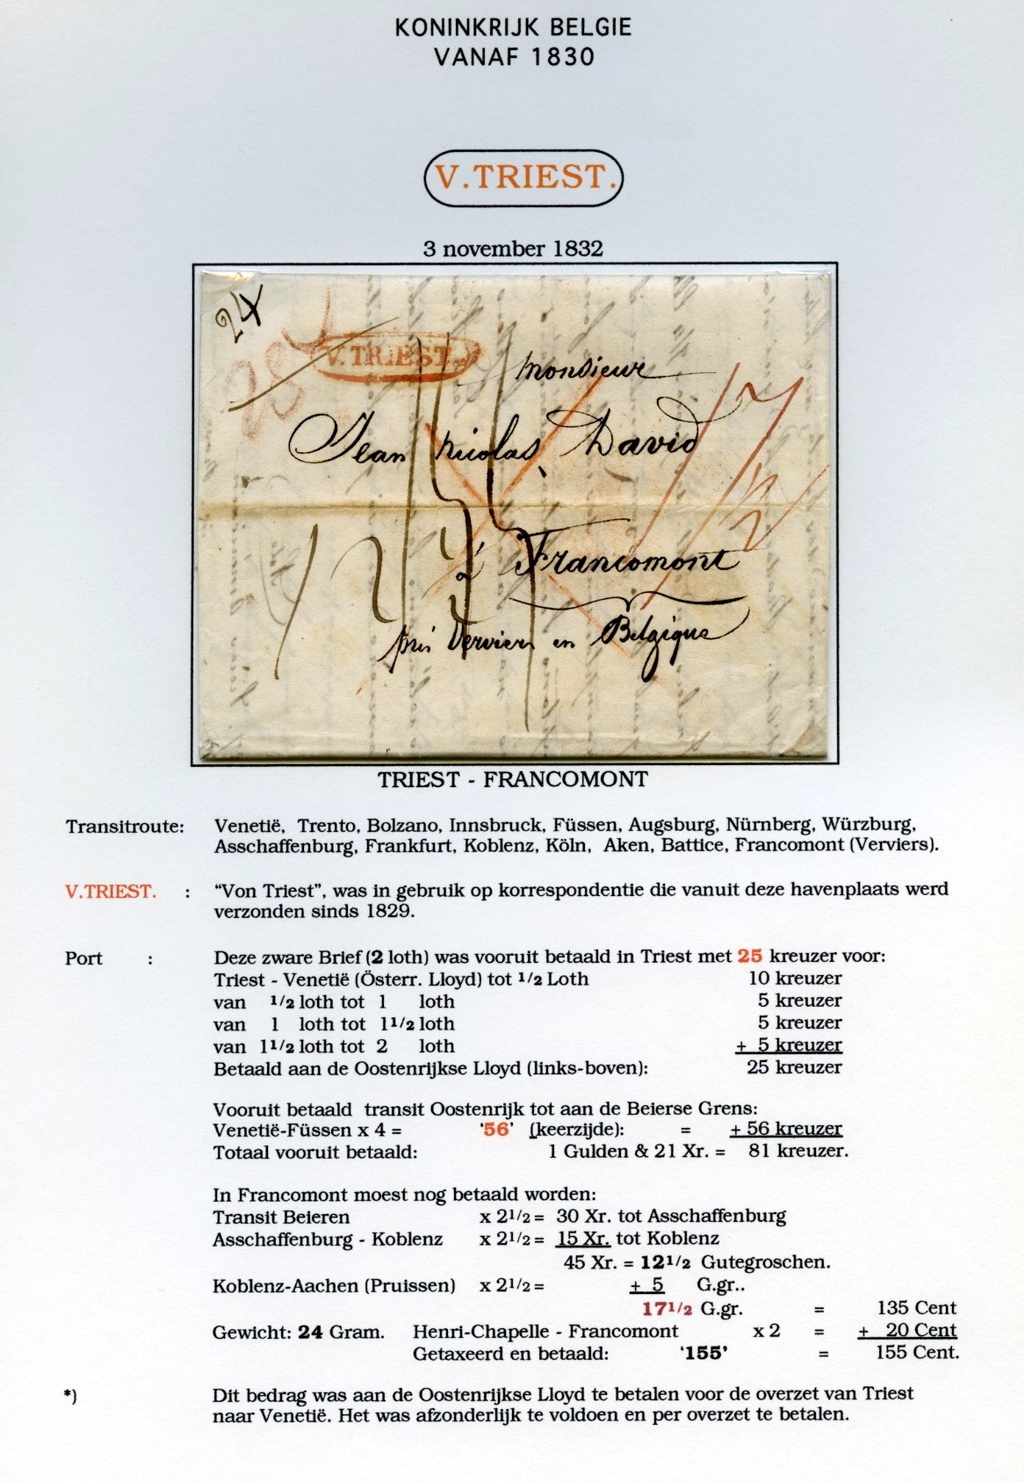 KONINKRIJK BELGIE
VANAF 1830
V.TRIEST.
3 november 1832
24
V. TRIEST.
Monsieur
Jean Nicolas David
à Francomont
près Verviers en Belgique
TRIEST - FRANCOMONT
Transitroute: Venetië, Trento, Bolzano, Innsbruck, Füssen, Augsburg, Nürnberg, Würzburg,
Asschaffenburg, Frankfurt, Koblenz, Köln, Aken, Battice, Francomont (Verviers).
V.TRIEST. : "Von Triest", was in gebruik op korrespondentie die vanuit deze havenplaats werd
verzonden sinds 1829.
Port : Deze zware Brief (2 loth) was vooruit betaald in Triest met 25 kreuzer voor:
Triest - Venetië (Österr. Lloyd) tot 1/2 Loth 10 kreuzer
van 1/2 loth tot 1 loth 5 kreuzer
van 1 loth tot 11/2 loth 5 kreuzer
van 11/2 loth tot 2 loth + 5 kreuzer
Betaald aan de Oostenrijkse Lloyd (links-boven): 25 kreuzer
Vooruit betaald transit Oostenrijk tot aan de Beierse Grens:
Venetië-Füssen x 4 = '56' (keerzijde): = + 56 kreuzer
Totaal vooruit betaald: 1 Gulden & 21 Xr. = 81 kreuzer.
In Francomont moest nog betaald worden:
Transit Beieren x 21/2 = 30 Xr. tot Asschaffenburg
Asschaffenburg - Koblenz x 21/2 = 15 Xr. tot Koblenz
45 Xr. = 121/2 Gutegroschen.
Koblenz-Aachen (Pruissen) x 21/2 = + 5 G.gr..
171/2 G.gr. = 135 Cent
Gewicht: 24 Gram. Henri-Chapelle - Francomont x 2 = + 20 Cent
Getaxeerd en betaald: '155' = 155 Cent.
*) Dit bedrag was aan de Oostenrijkse Lloyd te betalen voor de overzet van Triest
naar Venetië. Het was afzonderlijk te voldoen en per overzet te betalen.